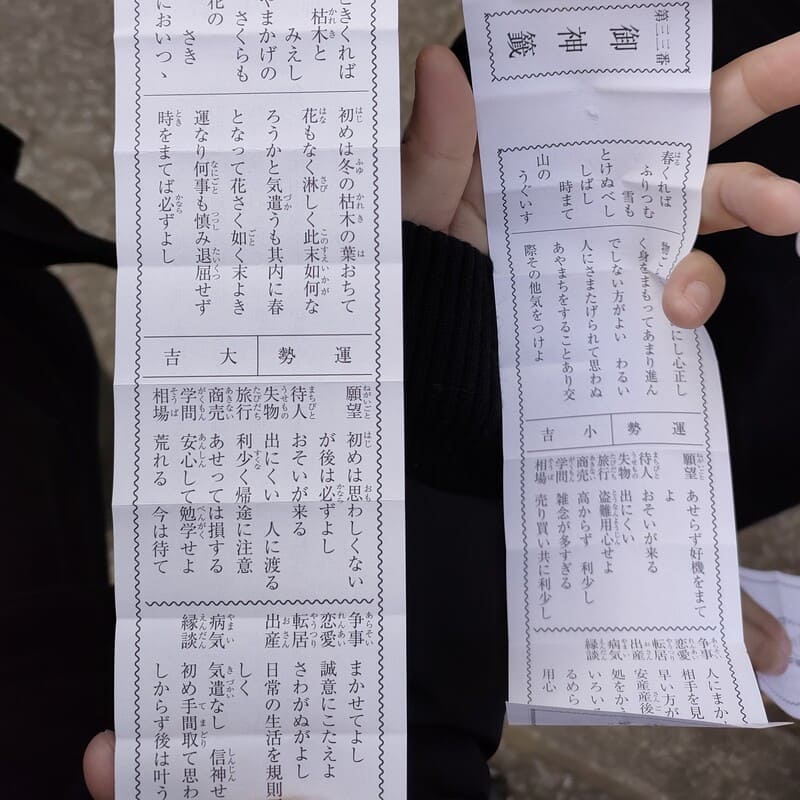 ときくれば
枯木と
みえし
やまかげの
さくらも
花の
さき
においつゝ
初めは冬の枯木の葉おちて
花もなく淋しく此末如何な
ろうかと気遣うも其内に春
となって花さく如く末よき
運なり何事も慎み退屈せず
時をまてば必ずよし
運勢
大吉
願望 初めは思わしくない
が後は必ずよし
待人 おそいが来る
失物 出にくい 人に渡る
旅行 利少く帰途に注意
商売 あせっては損する
学問 安心して勉学せよ
相場 荒れる 今は待て
争事 まかせてよし
恋愛 誠意にこたえよ
転居 さわがぬがよし
出産 日常の生活を規則
しく
病気 気遣なし 信神せ
縁談 初め手間取て思わ
しからず後は叶う
御神籤
春くれば
ふりつむ
雪も
とけぬべし
しばし
時まて
山の
うぐいす
にし心正し
く身をまもってあまり進ん
でしない方がよい わるい
人にさまたげられて思わぬ
あやまちをすることあり交
際その他気をつけよ
運勢
小吉
願望 あせらず好機をまて
よ
待人 おそいが来る
失物 出にくい
旅行 盗難用心せよ
商売 高からず 利少し
学問 雑念が多すぎる
相場 売り買い共に利少し
争事 人にまか
恋愛 相手を見
転居 早い方が
出産 安産産後
病気 処をか
縁談 いろい
るめら
用心